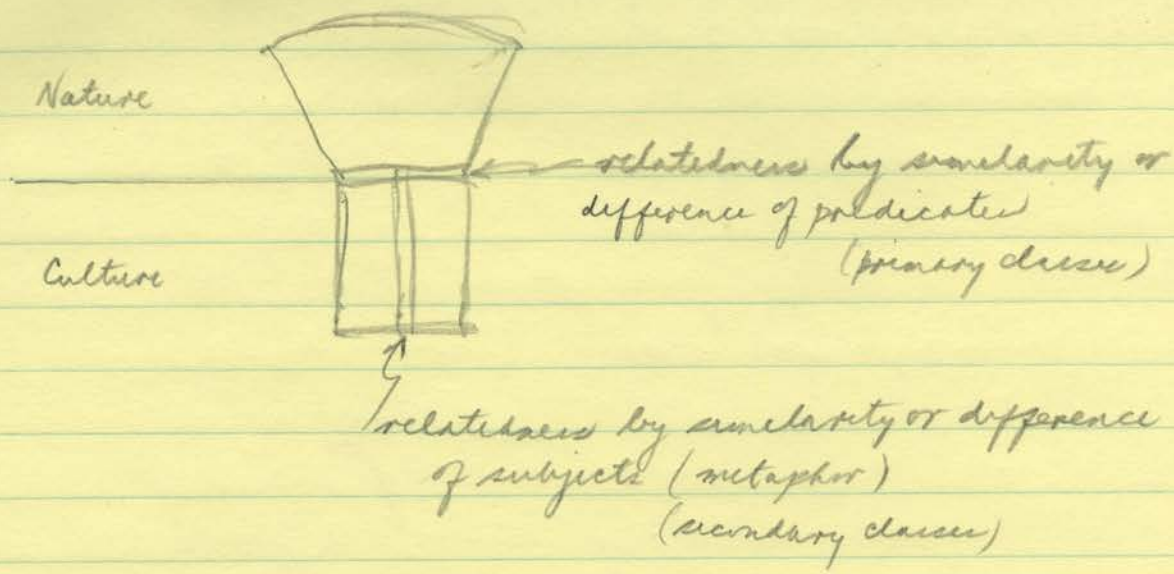 Nature
relatedness by similarity or
difference of predicates
(primary classes)
Culture
relatedness by similarity or difference
of subjects (metaphor)
(secondary classes)